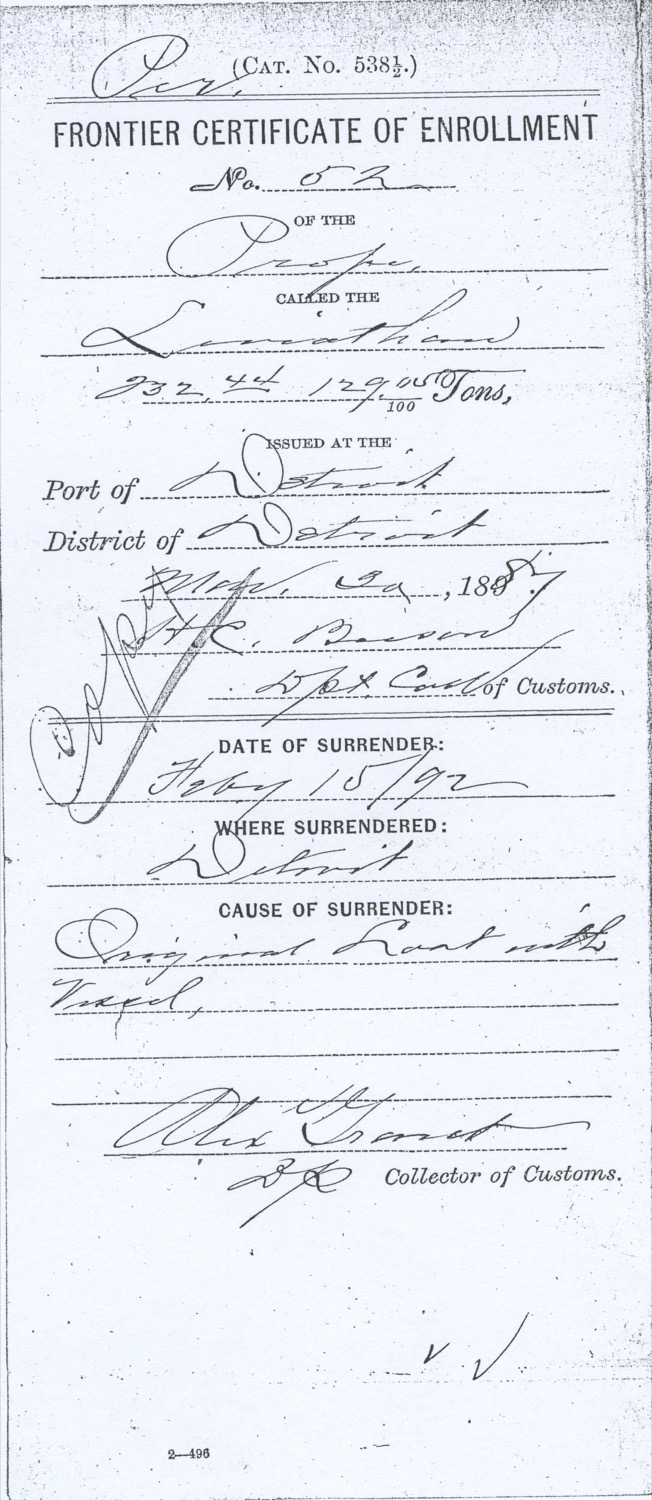 Per. (CAT. No. 538½.)
FRONTIER CERTIFICATE OF ENROLLMENT
No. 52
OF THE
Prope,
CALLED THE
Leviathan
232.44 129.00/100 Tons,
ISSUED AT THE
Port of Detroit
District of Detroit
30, 188
H. C.
Dpt. Coll of Customs.
Copy
DATE OF SURRENDER:
Feby 15/92
WHERE SURRENDERED:
Detroit
CAUSE OF SURRENDER:
Original Lost with
Vessel,
Alex Grant
Dp Collector of Customs.
2—496